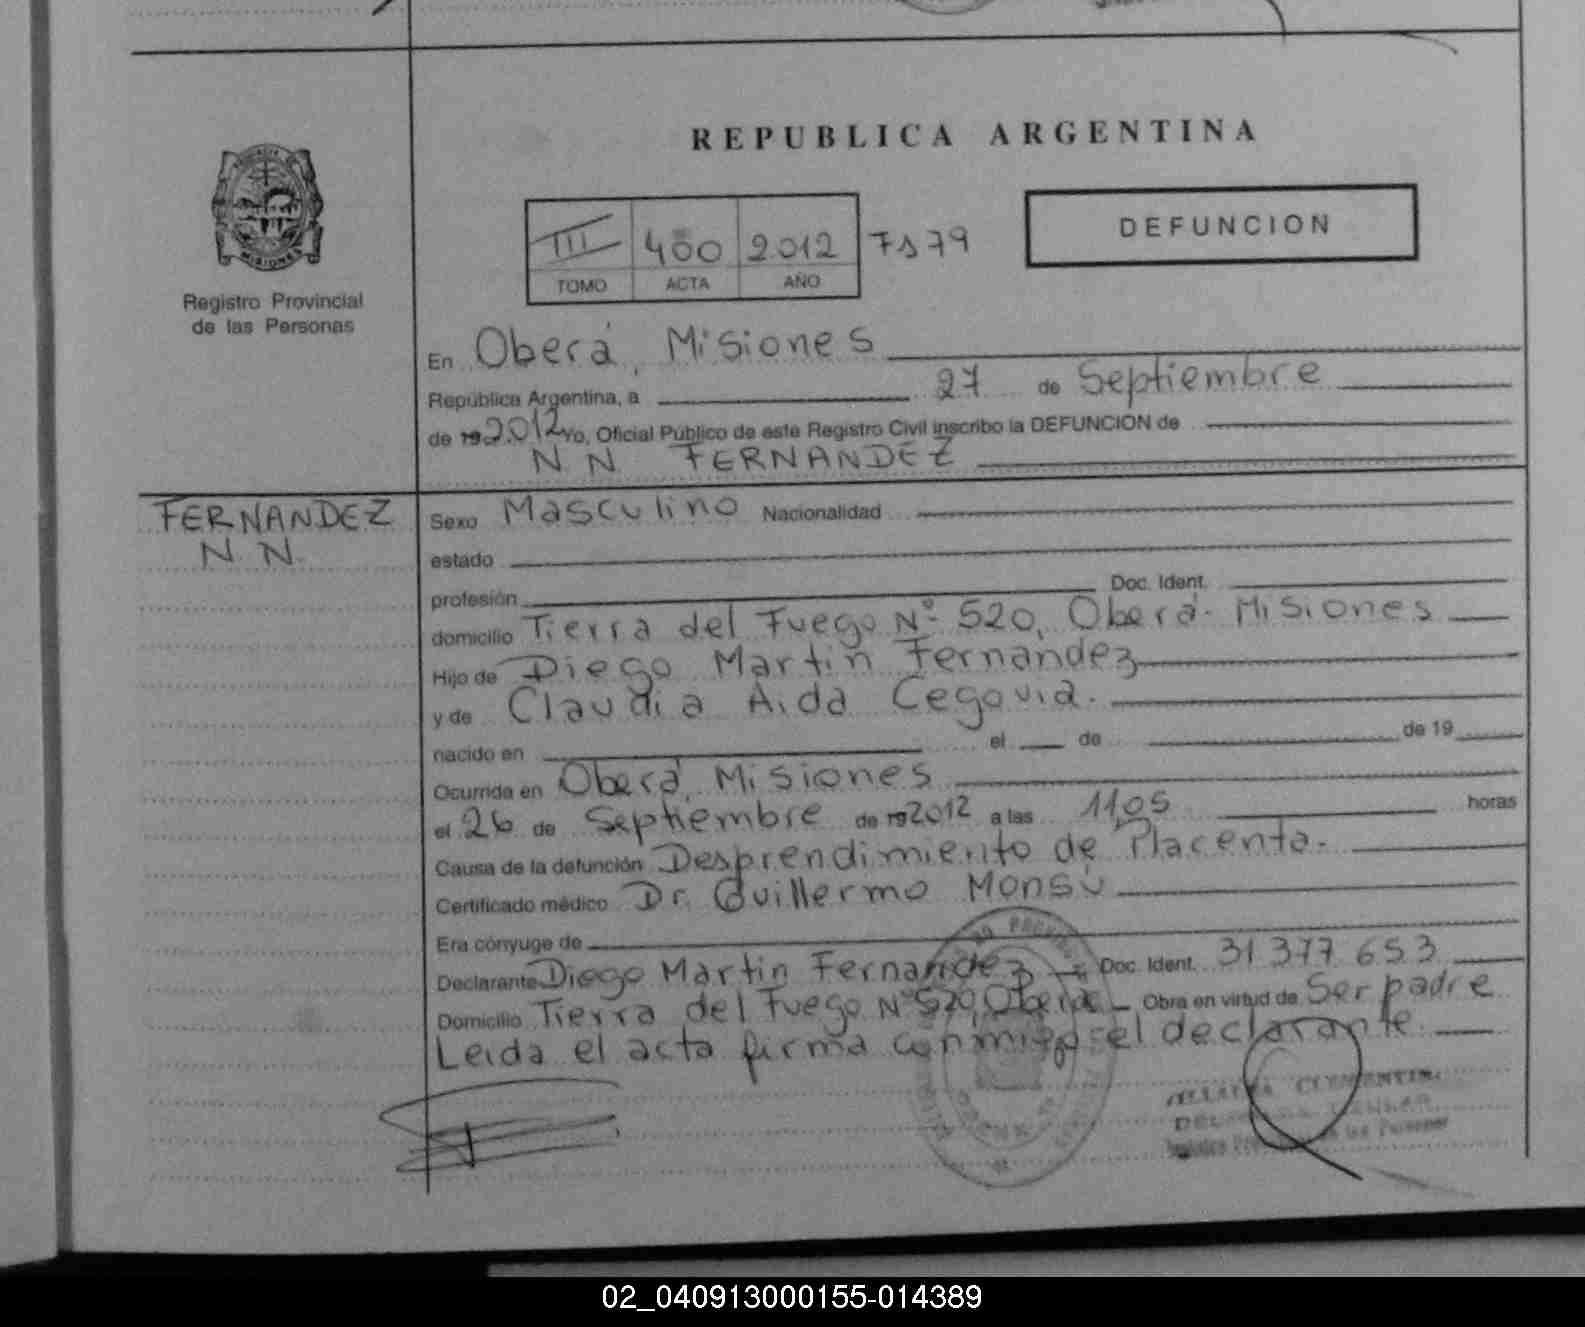 REPUBLICA ARGENTINA
PROVINCIA DE
MISIONES
Registro Provincial
de las Personas
III 400 2012 Fs 79
TOMO ACTA AÑO
DEFUNCION
En Oberá, Misiones
República Argentina, a 27 de Septiembre
de 19 2012 Yo, Oficial Público de este Registro Civil inscribo la DEFUNCION de
N N FERNANDEZ
FERNANDEZ
N. N.
Sexo Masculino Nacionalidad
estado
profesión Doc. Ident.
domicilio Tierra del Fuego Nº 520, Oberá - Misiones
Hijo de Diego Martin Fernandez
y de Claudia Aida Cegovia.
nacido en el de de 19
Ocurrida en Oberá, Misiones
el 26 de Septiembre de 19 2012 a las 11,05 horas
Causa de la defunción Desprendimiento de Placenta.
Certificado médico Dr. Guillermo Monsú
Era cónyuge de
Declarante Diego Martin Fernandez Doc. Ident. 31 377 653
Domicilio Tierra del Fuego Nº 520, Oberá Obra en virtud de Ser padre
Leida el acta firma conmigo el declarante.
02_040913000155-014389